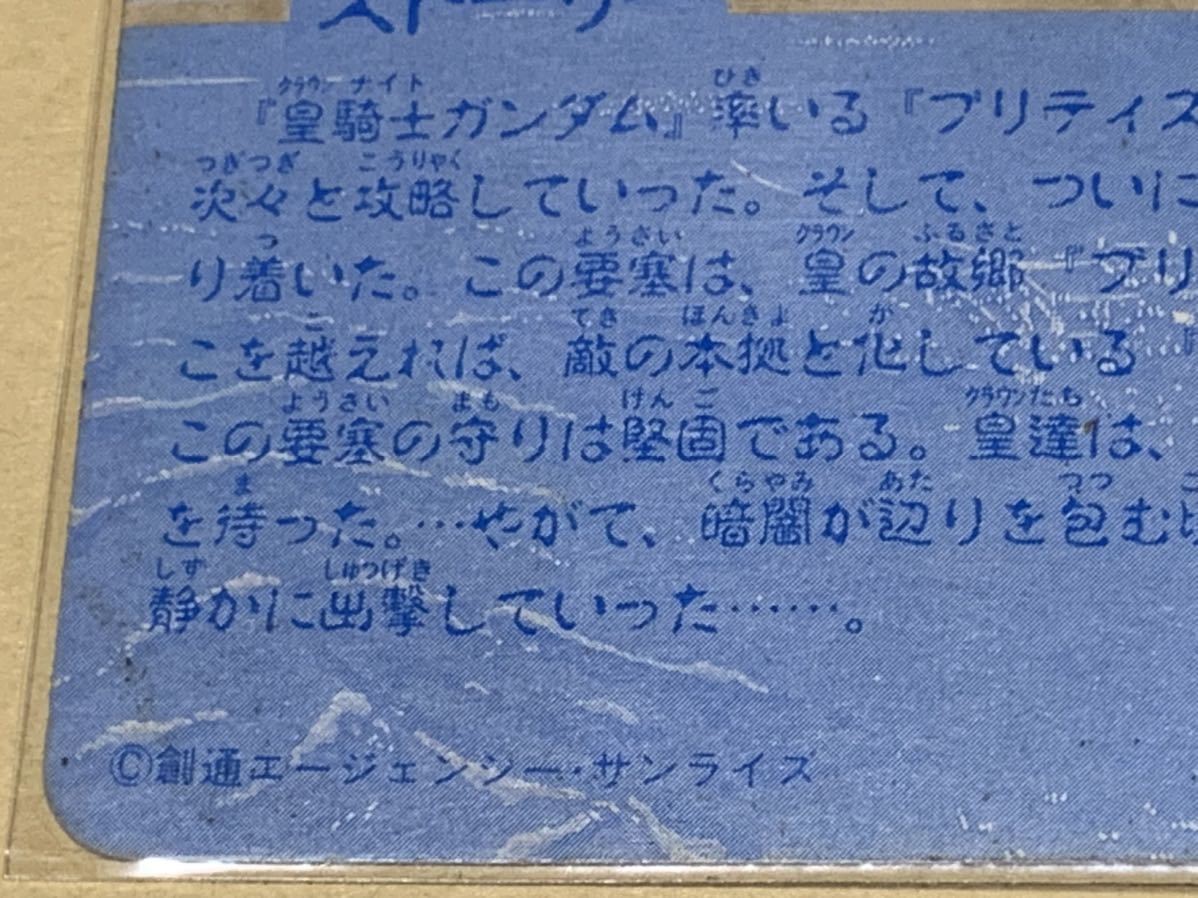 ストーリー
『皇騎士ガンダム』率いる『ブリティス
次々と攻略していった。そして、ついに
り着いた。この要塞は、皇の故郷『ブリ
こを越えれば、敵の本拠と化している『
この要塞の守りは堅固である。皇達は、
を待った。…やがて、暗闇が辺りを包む
静かに出撃していった……。
©創通エージェンシー・サンライズ